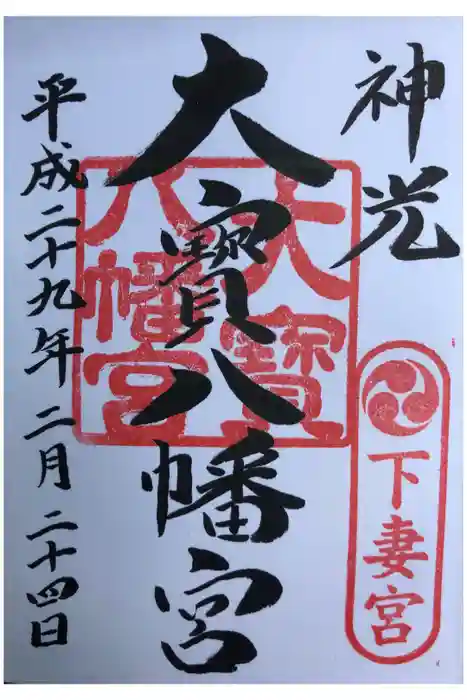 神光
下妻宮
大寳八幡宮
大寳
八幡宮
平成二十九年 二月 二十四日